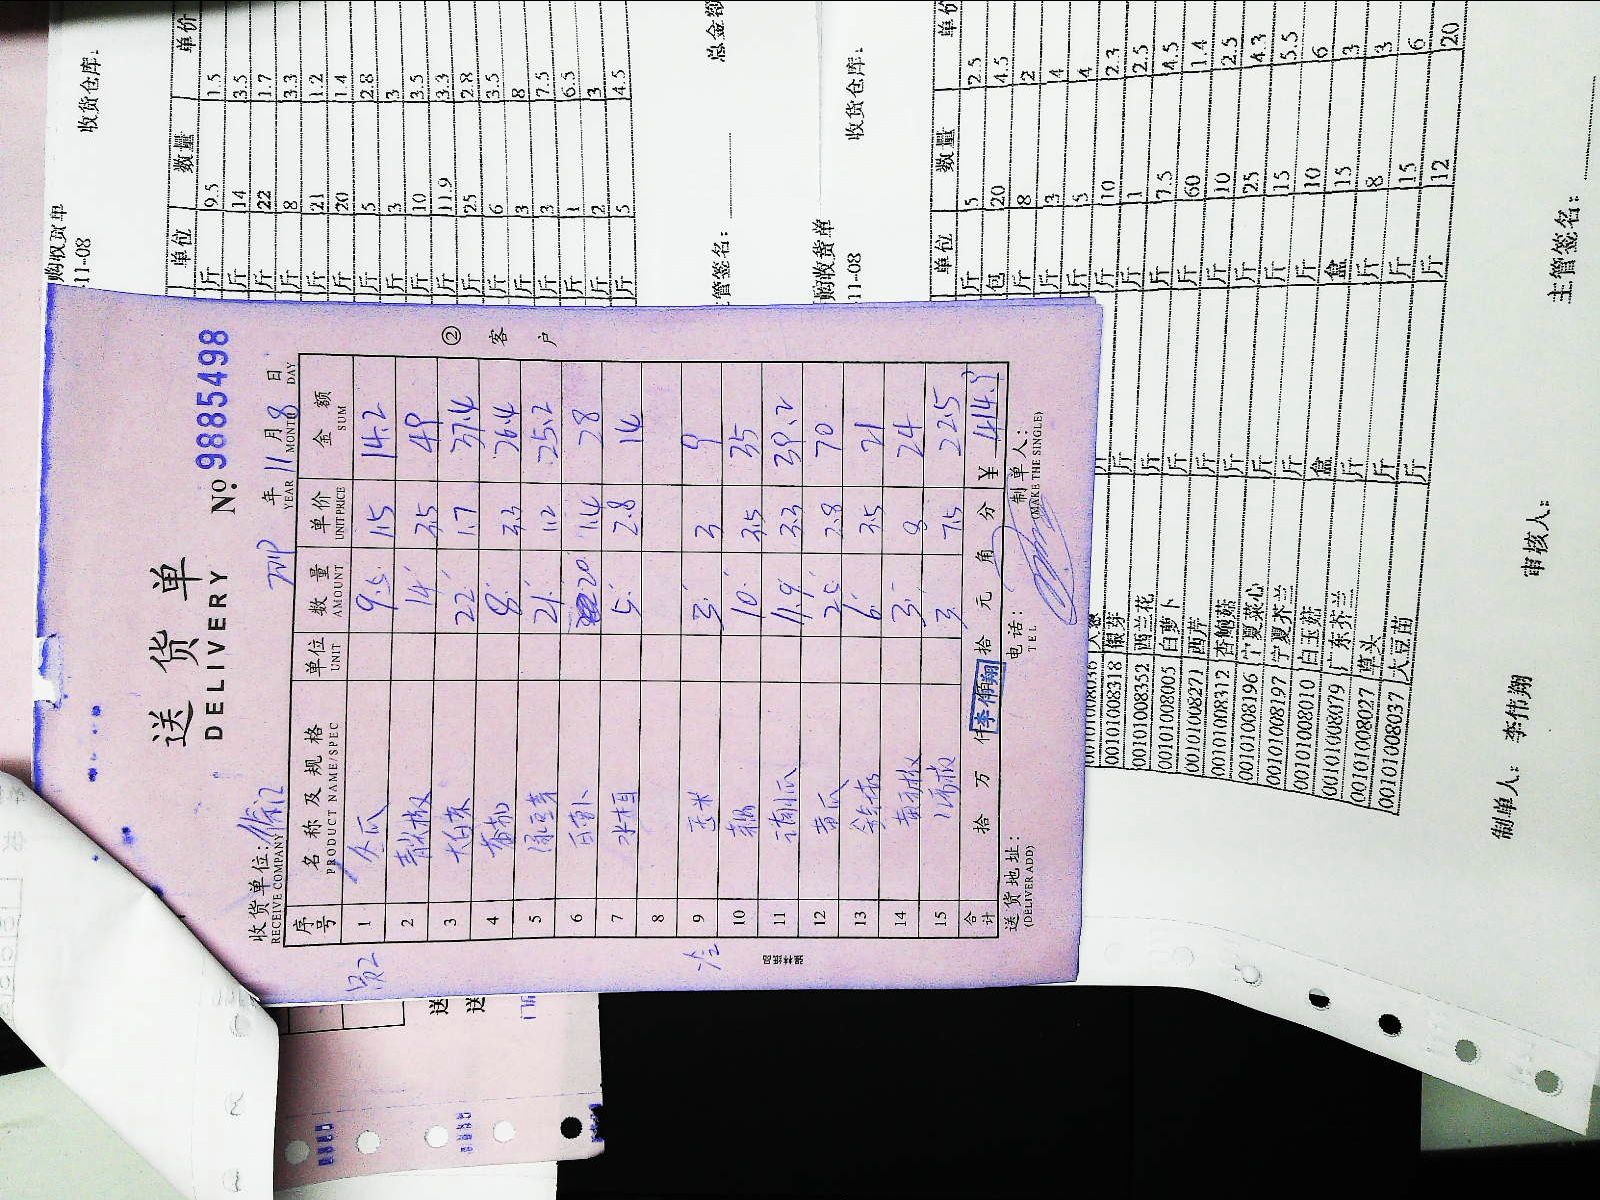 送货单
DELIVERY
№ 9885498
收货单位:
RECEIVE COMPANY
年 11 月 8 日
YEAR MONTH DAY
序号 名称及规格 单位 数量 单价 金额
PRODUCT NAME/SPEC UNIT AMOUNT UNIT PRICE SUM
1 冬瓜 9.5 1.5 14.2
2 青尖椒 14 3.5 49
3 22 1.7 37.4
4 番茄 8 3.3 26.4
5 绿豆芽 21 1.2 25.2
6 白萝卜 20 1.4 28
7 5 2.8 14
8
9 玉米 3 3 9
10 10 3.5 35
11 11.9 3.3 39.2
12 黄瓜 25 2.8 70
13 6 3.5 21
14 3 8 24
15 3 7.5 22.5
合计 拾 万 仟 拾 元 角 分 ¥ 414.9
李伟翔
送货地址:
(DELIVER ADD)
电话:
TEL
制单人:
(MAKE THE SINGLE)
② 客户
购收货单
11-08
收货仓库:
单位 数量 单价
斤 9.5 1.5
斤 14 3.5
斤 22 1.7
斤 8 3.3
斤 21 1.2
斤 20 1.4
斤 5 2.8
斤 3 3
斤 10 3.5
斤 11.9 3.3
斤 25 2.8
斤 6 3.5
斤 3 8
斤 3 7.5
斤 1 6.5
斤 2 3
斤 5 4.5
总金额
管签名:
购收货单
11-08
收货仓库:
单位 数量 单价
斤 5 2.5
包 20 4.5
斤 8 2
斤 3 14
斤 5 4
斤 10 2.3
斤 1 2.5
斤 7.5 4.5
斤 60 1.4
斤 10 2.5
斤 25 4.3
斤 15 5.5
斤 10 6
盒 15 3
斤 8 3
斤 15 6
斤 12 20
001010008318 银芽 斤
001010008352 西兰花 斤
001010008005 白萝卜 斤
001010008271 西芹 斤
001010008312 杏鲍菇 斤
001010008196 宁夏菜心 斤
001010008197 宁夏芥兰 斤
001010008010 白玉菇 盒
001010008079 广东芥兰 斤
001010008027 草头 斤
001010008037 大豆苗 斤
制单人: 李伟翔
审核人:
主管签名: